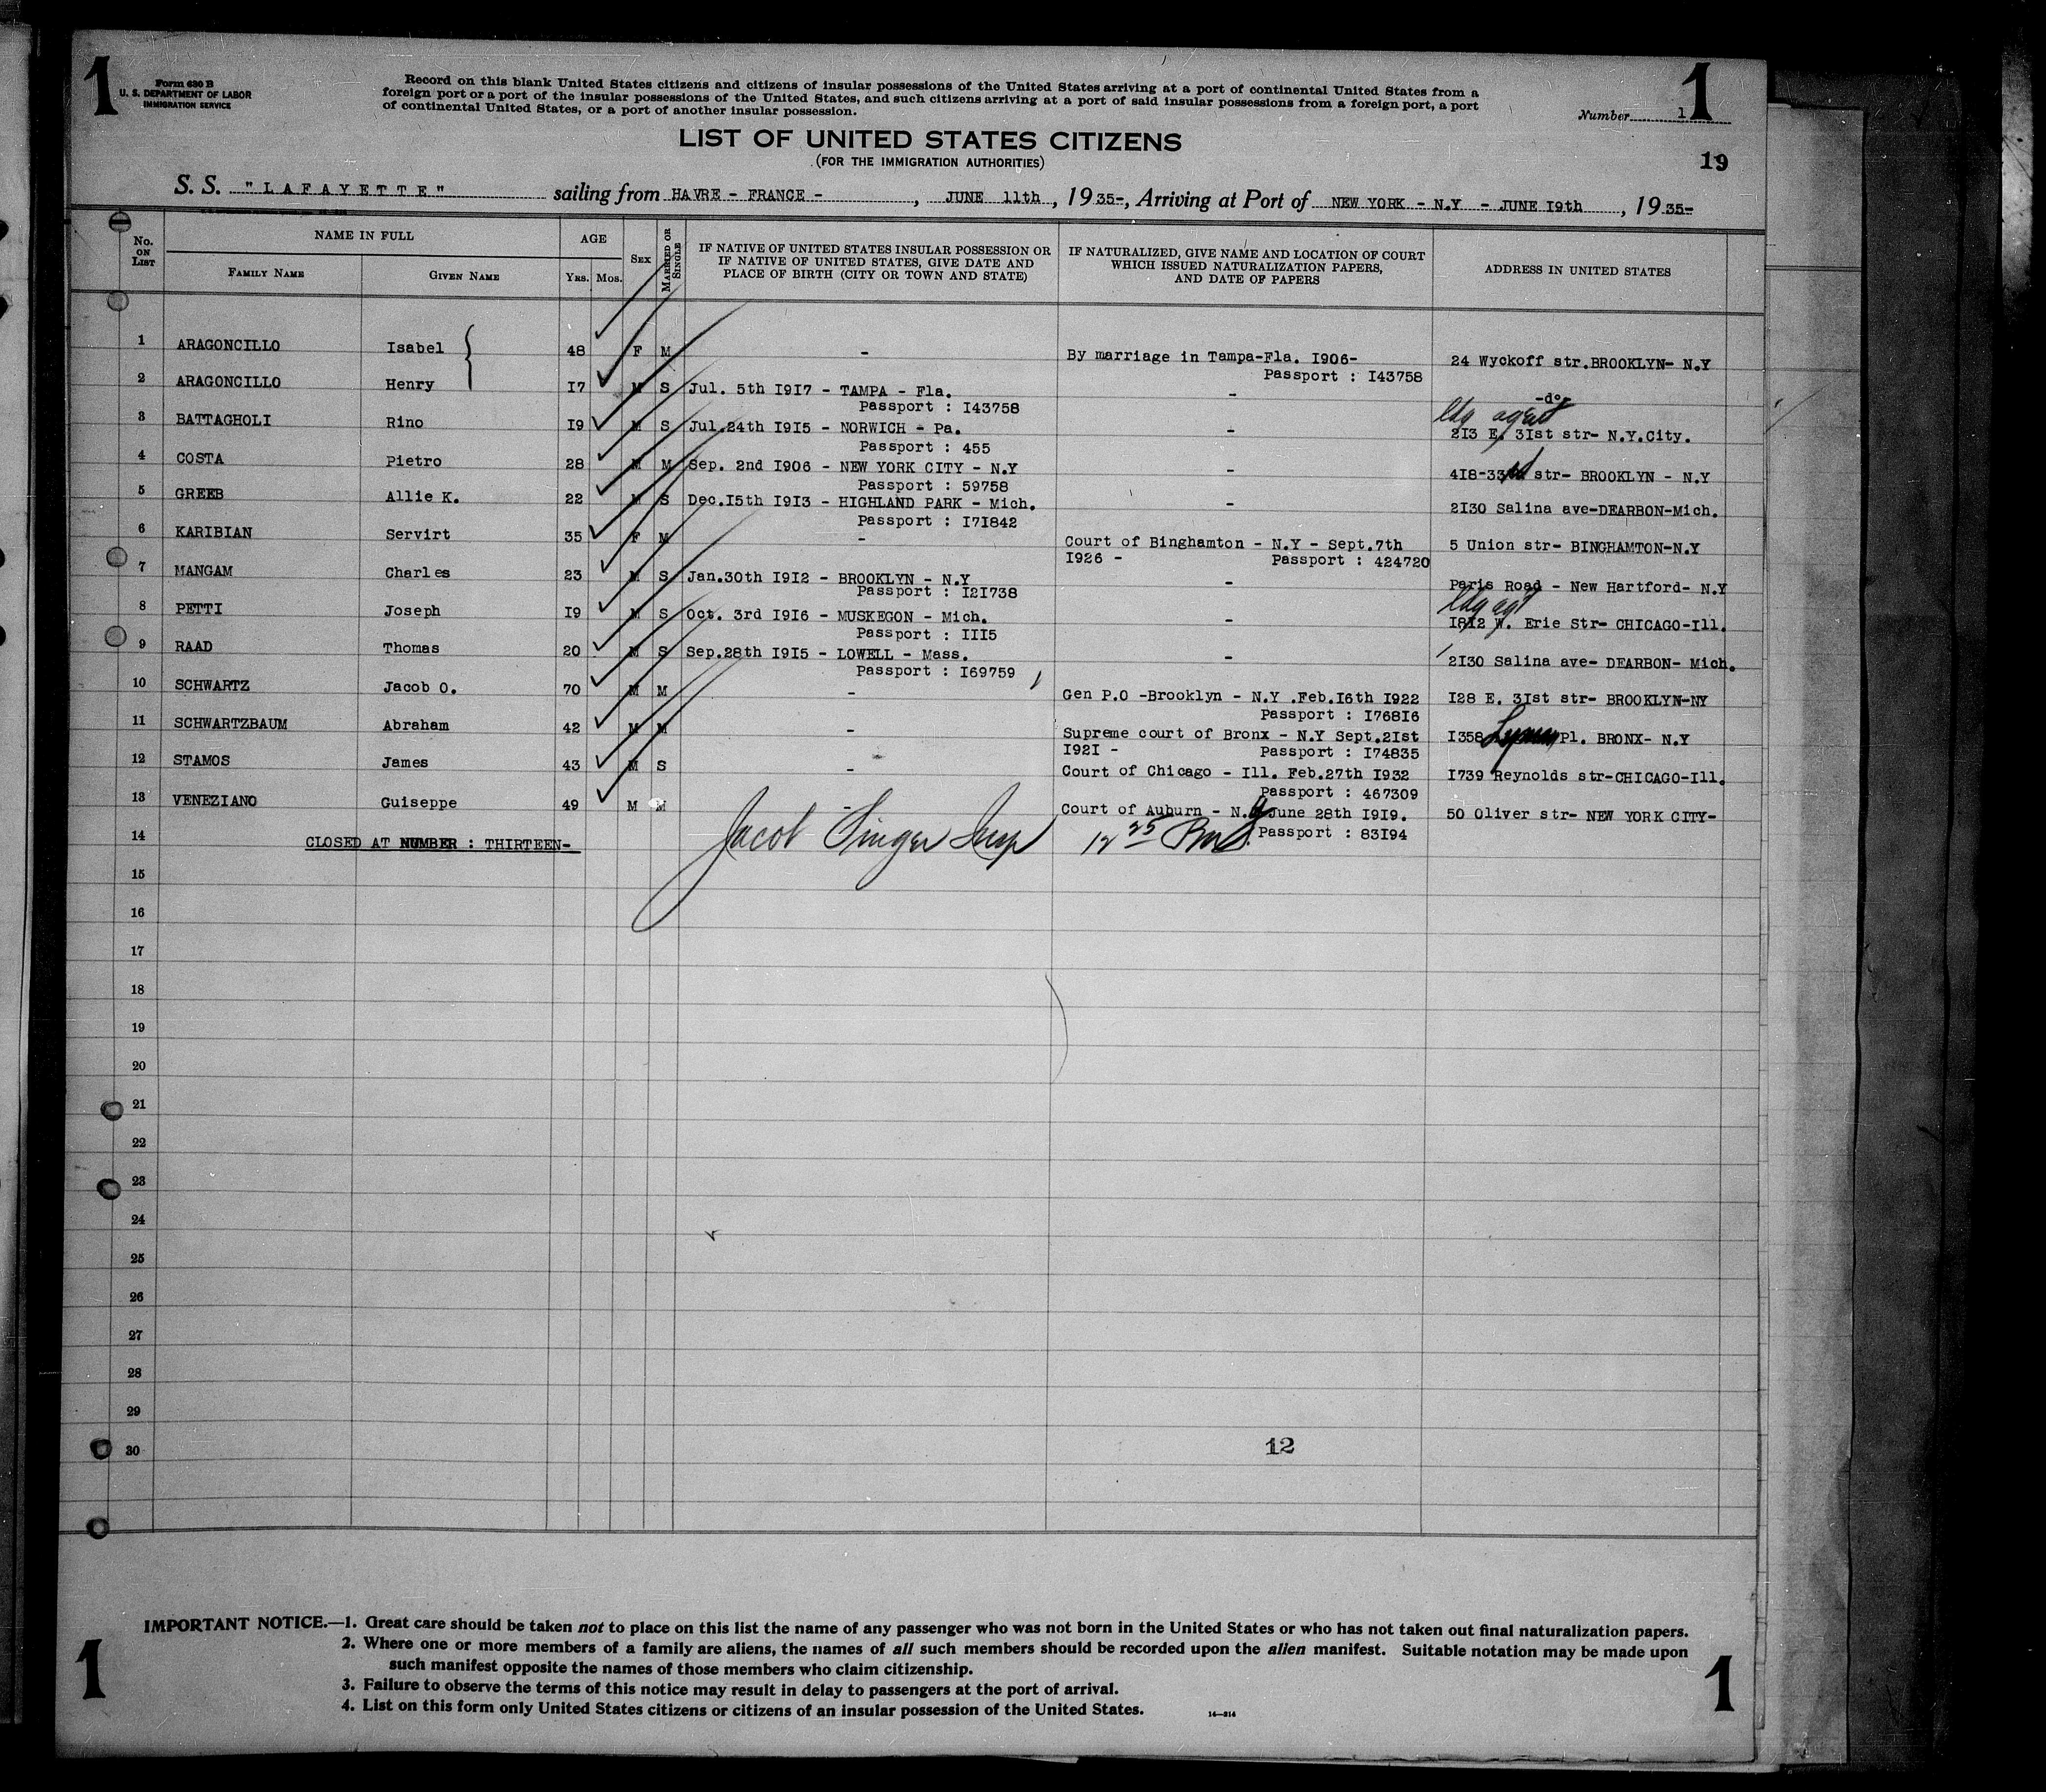 1
1
Form 630 B
U. S. DEPARTMENT OF LABOR
IMMIGRATION SERVICE
Record on this blank United States citizens and citizens of insular possessions of the United States arriving at a port of continental United States from a
foreign port or a port of the insular possessions of the United States, and such citizens arriving at a port of said insular possessions from a foreign port, a port
of continental United States, or a port of another insular possession.
Number 1
LIST OF UNITED STATES CITIZENS
(FOR THE IMMIGRATION AUTHORITIES)
19
S. S. "LAFAYETTE" sailing from HAVRE - FRANCE - , JUNE 11th , 1935-, Arriving at Port of NEW YORK - N.Y - JUNE I9th , 1935-
No. ON LIST
NAME IN FULL
FAMILY NAME
GIVEN NAME
AGE
YRS.
MOS.
SEX
MARRIED OR SINGLE
IF NATIVE OF UNITED STATES INSULAR POSSESSION OR
IF NATIVE OF UNITED STATES, GIVE DATE AND
PLACE OF BIRTH (CITY OR TOWN AND STATE)
IF NATURALIZED, GIVE NAME AND LOCATION OF COURT
WHICH ISSUED NATURALIZATION PAPERS,
AND DATE OF PAPERS
ADDRESS IN UNITED STATES
1 ARAGONCILLO Isabel 48 F M - By marriage in Tampa-Fla. I906- 24 Wyckoff str.BROOKLYN- N.Y
Passport : I43758
2 ARAGONCILLO Henry I7 M S Jul. 5th I9I7 - TAMPA - Fla. - -do-
Passport : I43758
ldg agent
3 BATTAGHOLI Rino I9 M S Jul.24th I9I5 - NORWICH - Pa. - 2I3 E. 3Ist str- N.Y.City.
Passport : 455
4 COSTA Pietro 28 M M Sep. 2nd I906 - NEW YORK CITY - N.Y - 4I8-33rd str- BROOKLYN - N.Y
Passport : 59758
5 GREEB Allie K. 22 M S Dec.I5th I9I3 - HIGHLAND PARK - Mich. - 2I30 Salina ave-DEARBON-Mich.
Passport : I7I842
6 KARIBIAN Servirt 35 F M - Court of Binghamton - N.Y - Sept.7th 5 Union str- BINGHAMTON-N.Y
I926 - Passport : 424720
7 MANGAM Charles 23 M S Jan.30th I9I2 - BROOKLYN - N.Y - Paris Road - New Hartford- N.Y
Passport : I2I738
ldg agt
8 PETTI Joseph I9 M S Oct. 3rd I9I6 - MUSKEGON - Mich. - I8I2 W. Erie Str- CHICAGO-Ill.
Passport : III5
9 RAAD Thomas 20 M S Sep.28th I9I5 - LOWELL - Mass. - 2I30 Salina ave- DEARBON- Mich.
Passport : I69759
10 SCHWARTZ Jacob O. 70 M M - Gen P.O -Brooklyn - N.Y .Feb.I6th I922 I28 E. 3Ist str- BROOKLYN-NY
Passport : I768I6
11 SCHWARTZBAUM Abraham 42 M M - Supreme court of Bronx - N.Y Sept.2Ist I358 Pl. BRONX- N.Y
I92I - Passport : I74835
12 STAMOS James 43 M S - Court of Chicago - Ill. Feb.27th I932 I739 Reynolds str-CHICAGO-Ill.
Passport : 467309
13 VENEZIANO Guiseppe 49 M M - Court of Auburn - N.Y June 28th I9I9. 50 Oliver str- NEW YORK CITY-
Passport : 83I94
14 CLOSED AT NUMBER : THIRTEEN- Jacob Singer Insp 12 25 Pm
15
16
17
18
19
20
21
22
23
24
25
26
27
28
29
30
12
IMPORTANT NOTICE.—1. Great care should be taken not to place on this list the name of any passenger who was not born in the United States or who has not taken out final naturalization papers.
2. Where one or more members of a family are aliens, the names of all such members should be recorded upon the alien manifest. Suitable notation may be made upon
such manifest opposite the names of those members who claim citizenship.
3. Failure to observe the terms of this notice may result in delay to passengers at the port of arrival.
4. List on this form only United States citizens or citizens of an insular possession of the United States.
14—314
1
1